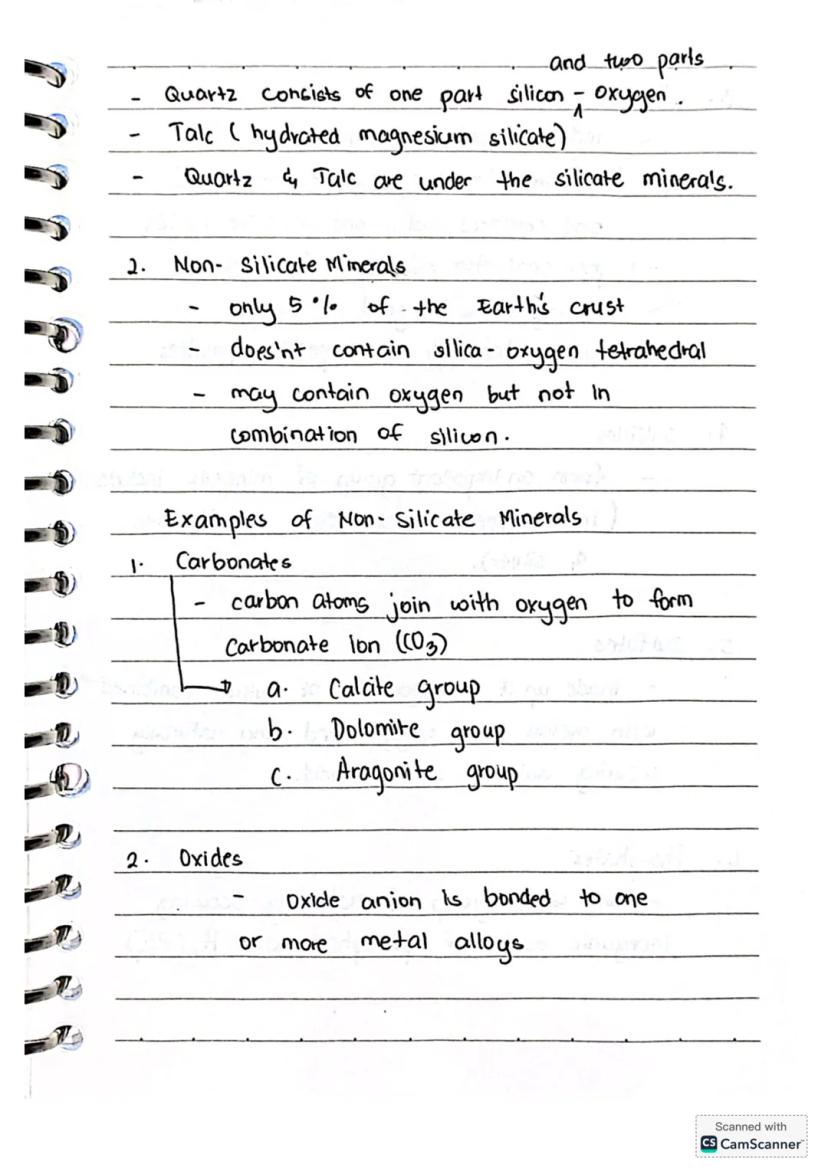 and two parts
- Quartz consists of one part silicon - ^ oxygen.
- Talc (hydrated magnesium silicate)
- Quartz & Talc are under the silicate minerals.
2. Non-Silicate Minerals
- only 5% of the Earth's crust
- does'nt contain silica-oxygen tetrahedral
- may contain oxygen but not in
combination of silicon.
Examples of Non-Silicate Minerals
1. Carbonates
- carbon atoms join with oxygen to form
Carbonate Ion (CO3)
→ a. Calcite group
b. Dolomite group
c. Aragonite group
2. Oxides
- Oxide anion is bonded to one
or more metal alloys.
Scanned with
CS CamScanner